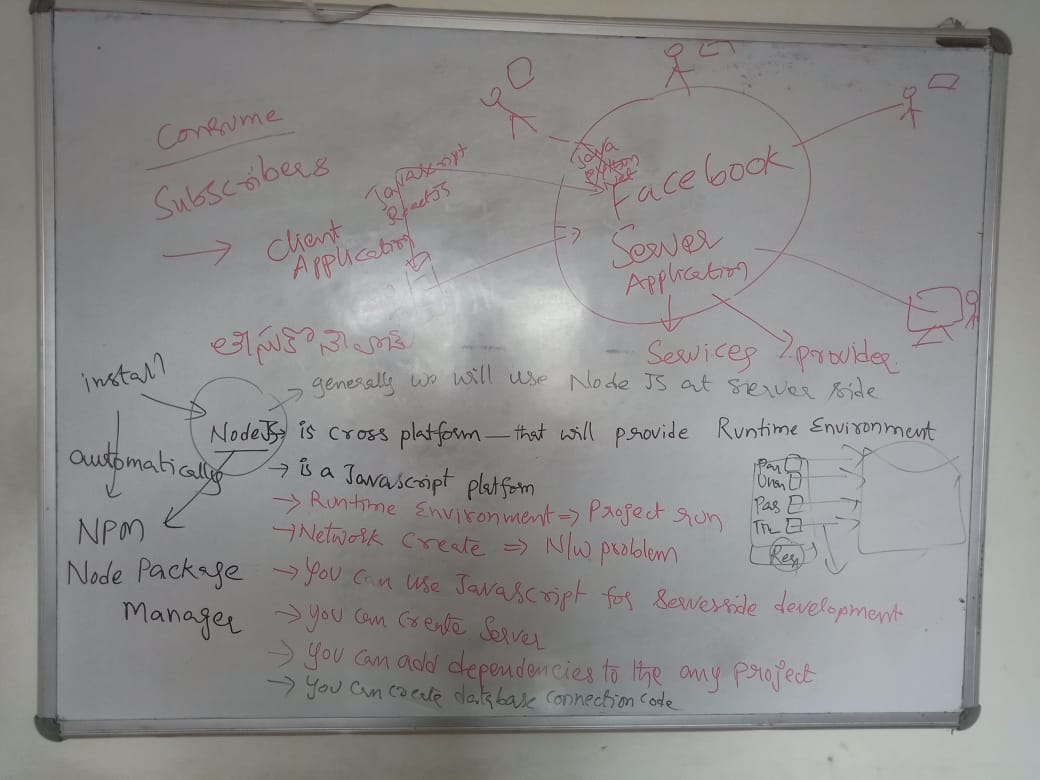 Consume
Subscribers
→ Client Application
Javascript
ReactJS
Java
Facebook
Server
Application
Services
provider
install
automatically
NPM
Node Package
Manager
→ generally we will use Node JS at server side
NodeJS → is cross platform — that will provide Runtime Environment
→ is a Javascript platform
→ Runtime Environment ⇒ Project run
→ Network Create ⇒ N/w problem
→ you can use Javascript for serverside development
→ you can create Server
→ you can add dependencies to the any project
→ you can create database connection code
Pan
Pas